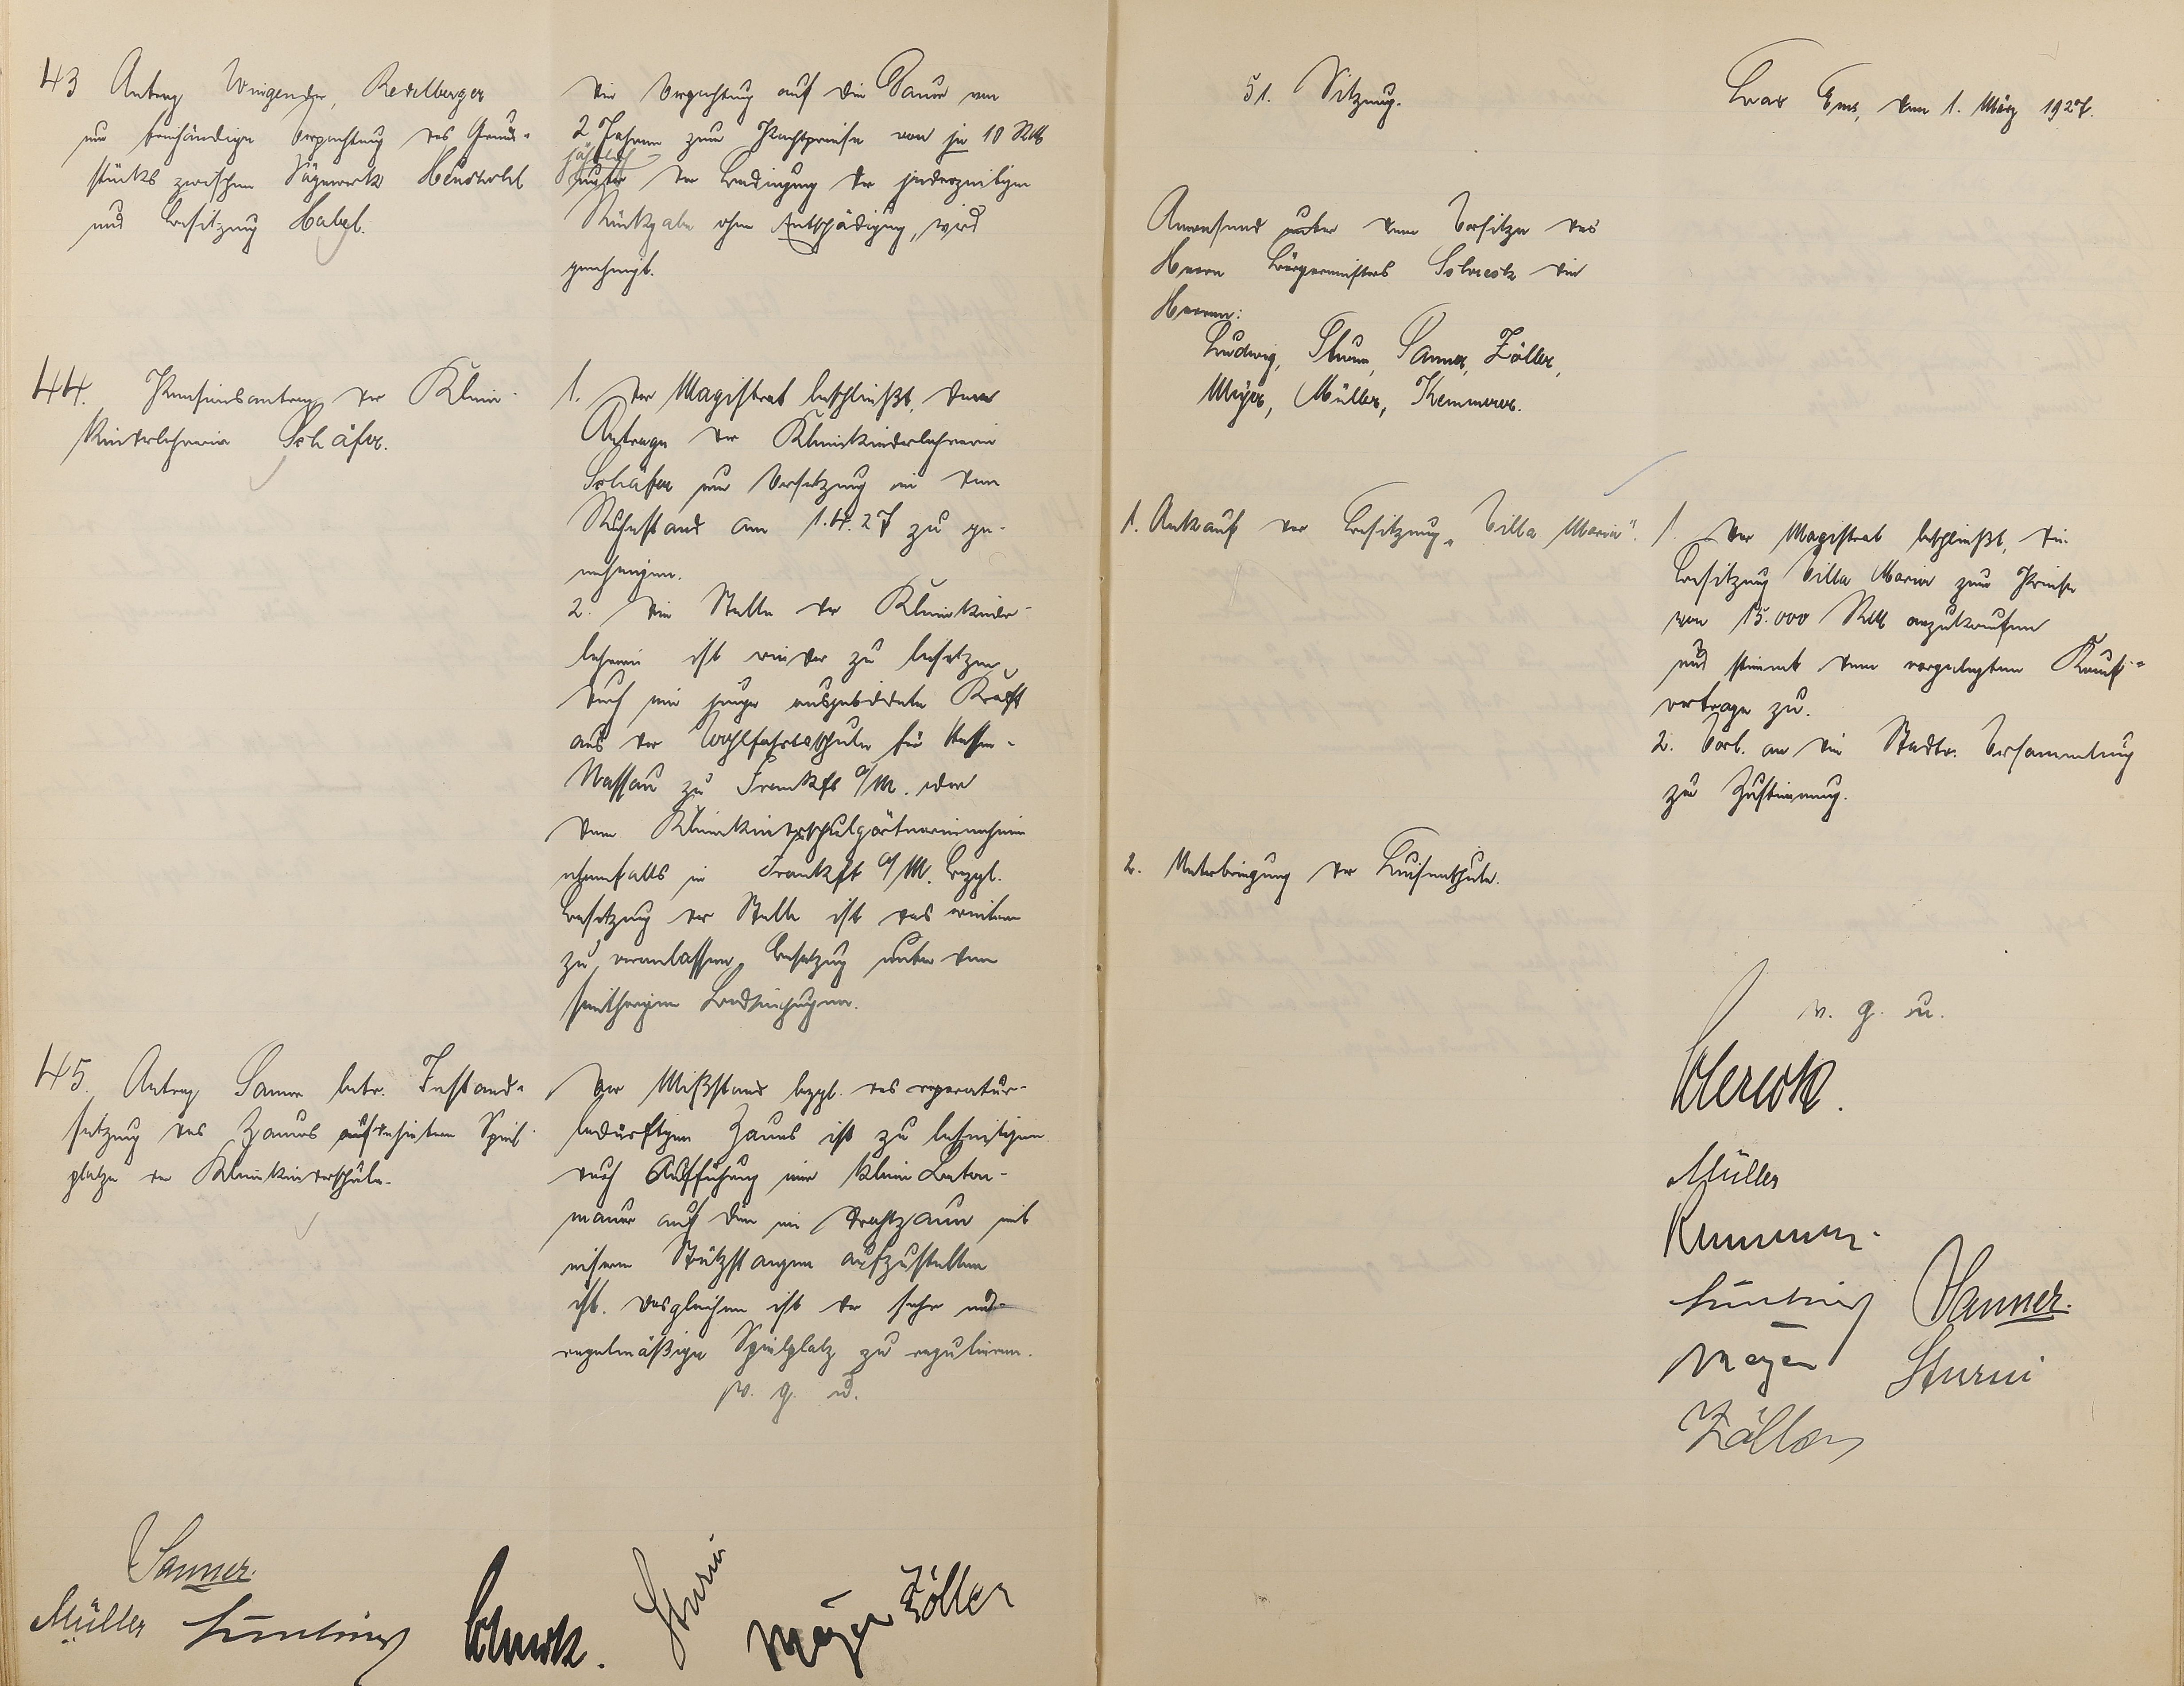 43 Antrag Wingender, Redelberger
um freihändige Verpachtung des Grund-
stücks zwischen Sägewerk
und Besitzung Habel.
Die Verpachtung auf die Dauer von
2 Jahren zum Pachtpreise von je 10 RM
jährlich
unter der Bedingung der jederzeitigen
Rückgabe ohne Entschädigung, wird
genehmigt.
44. Pensionsantrag der Klein-
kinderlehrerin Schäfer.
1. Der Magistrat beschließt, dem
Antrage der Kleinkinderlehrerin
Schäfer um Versetzung in den
Ruhestand am 1.4.27 zu ge-
nehmigen.
2. Die Stelle der Kleinkinder-
lehrerin ist wieder zu besetzen
durch eine junge ausgebildete Kraft
aus der Wohlfahrtsschule für Hessen-
Nassau zu Frankft a/M. oder
dem Kleinkinderschulgärtnerinnenheim
ebenfalls in Frankft a/M. bezgl.
Besetzung der Stelle ist das weitere
zu veranlassen. Besetzung unter den
seitherigen Bedingungen.
45. Antrag Sanner betr. Instand-
setzung des Zaunes auf dem hinteren Spiel-
platze der Kleinkinderschule.
Der Mißstand bezgl. des reparatur-
bedürftigen Zauns ist zu beseitigen
durch Aufführung einer kleinen Beton-
mauer auf den ein Drahtzaun mit
eisernen Stützstangen aufzustellen
ist. Desgleichen ist der sehr un-
regelmäßige Spielplatz zu regulieren.
v. g. u.
Sanner.
Müller Ludwig Schreck. Sturm Meyer Zöller
51. Sitzung.
Bad Ems, den 1. März 1927.
Anwesend unter dem Vorsitze des
Herrn Bürgermeisters Schreck die
Herren:
Ludwig, Sturm, Sanner, Zöller,
Meyer, Müller, Kemmerer.
1. Ankauf der Besitzung „Villa Maria".
1. Der Magistrat beschließt, die
Besitzung Villa Maria zum Preise
von 15.000 RM anzukaufen
und stimmt dem vorgelegten Kauf-
vertrage zu.
2. Vorl. an die Stadtv. Versammlung
zur Zustimmung.
2. Unterbringung der Luisenschule.
v. g. u.
Schreck.
Müller
Kemmerer.
Ludwig Sanner.
Meyer Sturm
Zöller